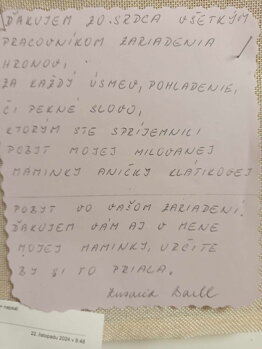 ĎAKUJEM ZO SRDCA VŠETKÝM
PRACOVNÍKOM ZARIADENIA
HRONOV,
ZA KAŽDÝ ÚSMEV, POHLADENIE,
ČI PEKNÉ SLOVO,
KTORÝM STE SPRÍJEMNILI
POBYT MOJEJ MILOVANEJ
MAMINKY ANIČKY KLÁTIKOVEJ
POBYT VO VAŠOM ZARIADENÍ.
ĎAKUJEM VÁM AJ V MENE
MOJEJ MAMINKY, URČITE
BY SI TO PRIALA.
Zuzana
22. listopadu 2024 v 8:48